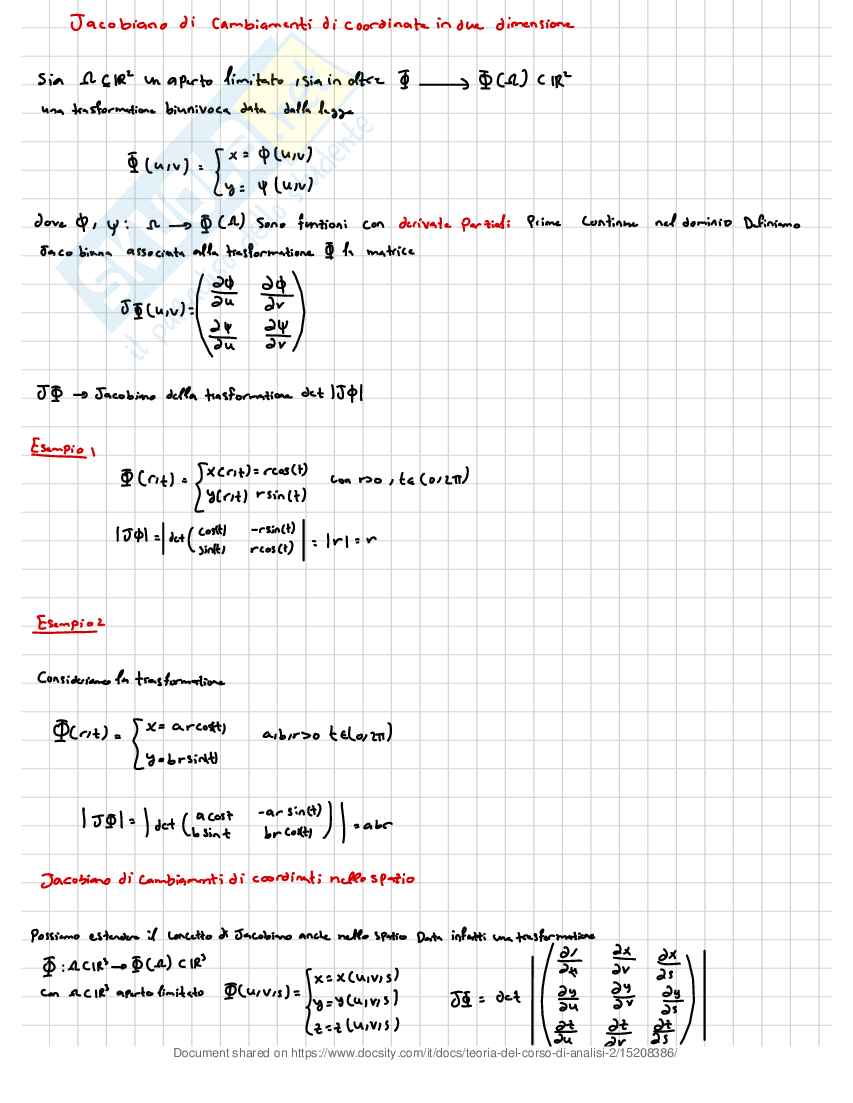 Jacobiano di Cambiamenti di coordinate in due dimensione
Sia Ω ⊆ ℝ² un aperto limitato, sia in oltre Φ ⟶ Φ(Ω) ⊂ ℝ²
una trasformazione biunivoca data dalla legge
Φ(u,v) = { x = φ(u,v)
y = ψ(u,v)
dove φ, ψ: Ω → Φ(Ω) sono funzioni con derivate parziali prime continue nel dominio Definiamo
Jacobiana associata alla trasformazione Φ la matrice
JΦ(u,v) = ( ∂φ/∂u ∂φ/∂v
∂ψ/∂u ∂ψ/∂v )
JΦ → Jacobiano della trasformazione det |Jφ|
Esempio 1
Φ(r,t) = { x(r,t) = rcos(t)
y(r,t) rsin(t) con r>0, t∈(0,2π)
|Jφ| = | det ( cos(t) -rsin(t)
sin(t) rcos(t) ) | = |r| = r
Esempio 2
Consideriamo la trasformazione
Φ(r,t) = { x = arcos(t)
y = brsin(t) a,b,r>0 t∈[0,2π)
|JΦ| = | det ( a cost -ar sin(t)
b sint br cos(t) ) | = abr
Jacobiano di Cambiamenti di coordinati nello spazio
Possiamo estendere il concetto di Jacobiano anche nello spazio Data infatti una trasformazione
Φ: Ω⊂ℝ³ → Φ(Ω) ⊂ ℝ³
con Ω⊂ℝ³ aperto limitato Φ(u,v,s) = { x = x(u,v,s)
y = y(u,v,s)
z = z(u,v,s)
JΦ = det | ( ∂x/∂u ∂x/∂v ∂x/∂s
∂y/∂u ∂y/∂v ∂y/∂s
∂z/∂u ∂z/∂v ∂z/∂s ) |
Document shared on https://www.docsity.com/it/docs/teoria-del-corso-di-analisi-2/15208386/